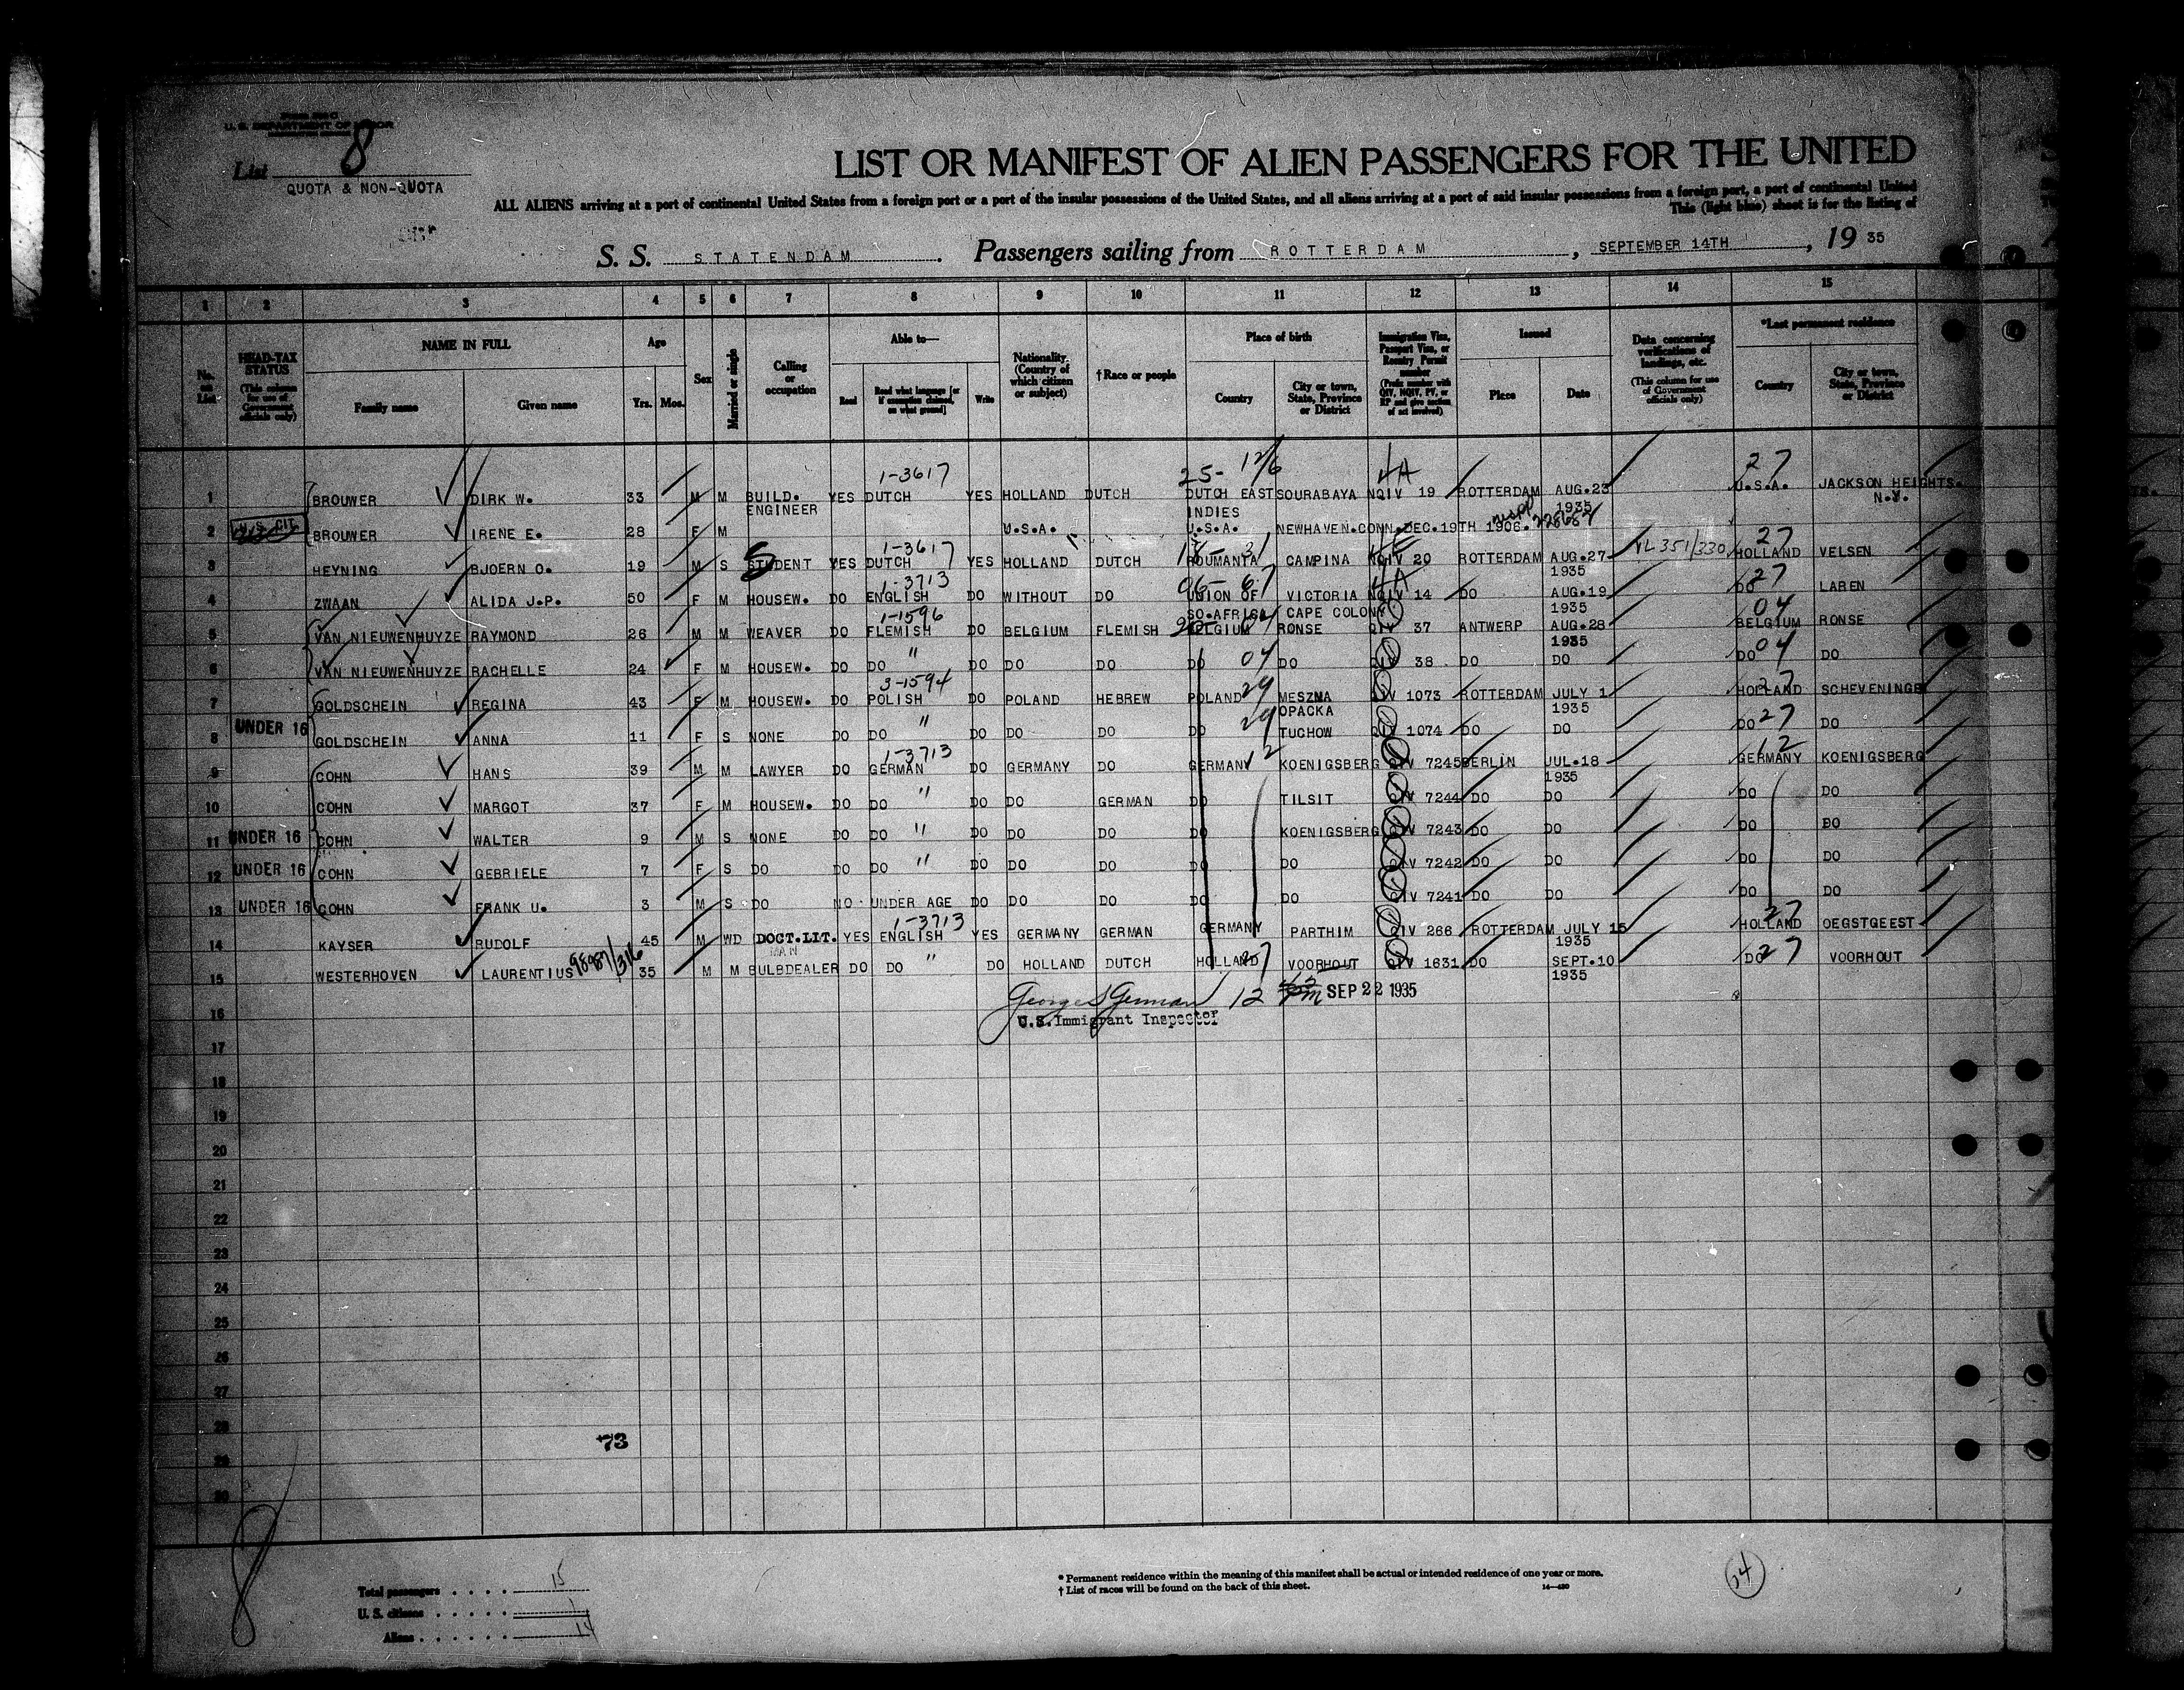 Form 500 C
U. S. DEPARTMENT OF LABOR
List 8
QUOTA & NON-QUOTA
LIST OR MANIFEST OF ALIEN PASSENGERS FOR THE UNITED
ALL ALIENS arriving at a port of continental United States from a foreign port or a port of the insular possessions of the United States, and all aliens arriving at a port of said insular possessions from a foreign port, a port of continental United
This (light blue) sheet is for the listing of
S. S. STATENDAM . Passengers sailing from ROTTERDAM , SEPTEMBER 14TH , 19 35
1 2 3 4 5 6 7 8 9 10 11 12 13 14 15
No. on List
HEAD-TAX STATUS (This column for use of Government officials only)
NAME IN FULL
Family name Given name
Age
Yrs. Mos.
Sex
Married or single
Calling or occupation
Able to—
Read Read what language [or if exemption claimed, on what ground] Write
Nationality. (Country of which citizen or subject)
† Race or people
Place of birth
Country City or town, State, Province or District
Immigration Visa, Passport Visa, or Reentry Permit number (Prefix number with QIV, NQIV, PV, or RP and give section of act involved)
Issued
Place Date
Data concerning verifications of landings, etc. (This column for use of Government officials only)
*Last permanent residence
Country City or town, State, Province or District
1-3617 25- 12/6 4A 27
1 BROUWER DIRK W. 33 M M BUILD. YES DUTCH YES HOLLAND DUTCH DUTCH EAST SOURABAYA NQIV 19 ROTTERDAM AUG.23 U.S.A. JACKSON HEIGHTS.
ENGINEER INDIES 1935 N.Y.
2 U.S. CIT. BROUWER IRENE E. 28 F M U.S.A. U.S.A. NEWHAVEN.CONN.DEC.19TH 1906. 228654
1-3617 27
3 HEYNING BJOERN O. 19 M S STUDENT YES DUTCH YES HOLLAND DUTCH ROUMANIA CAMPINA NQIV 20 ROTTERDAM AUG.27 VL 351/330 HOLLAND VELSEN
1-3713 1935 27
4 ZWAAN ALIDA J.P. 50 F M HOUSEW. DO ENGLISH DO WITHOUT DO UNION OF VICTORIA NQIV 14 DO AUG.19 DO LAREN
1-1596 SO.AFRICA CAPE COLONY 1935 04
5 VAN NIEUWENHUYZE RAYMOND 26 M M WEAVER DO FLEMISH DO BELGIUM FLEMISH BELGIUM RONSE QIV 37 ANTWERP AUG.28 BELGIUM RONSE
1935
6 VAN NIEUWENHUYZE RACHELLE 24 F M HOUSEW. DO DO " DO DO DO DO 04 DO QIV 38 DO DO DO 04 DO
3-1594
7 GOLDSCHEIN REGINA 43 F M HOUSEW. DO POLISH DO POLAND HEBREW POLAND 29 MESZNA QIV 1073 ROTTERDAM JULY 1 HOLLAND SCHEVENINGEN
OPACKA 1935
8 UNDER 16 GOLDSCHEIN ANNA 11 F S NONE DO DO " DO DO DO DO 29 TUCHOW QIV 1074 DO DO DO 27 DO
1-3713 12
9 COHN HANS 39 M M LAWYER DO GERMAN DO GERMANY DO GERMANY 12 KOENIGSBERG QIV 7245 BERLIN JUL.18 GERMANY KOENIGSBERG
1935
10 COHN MARGOT 37 F M HOUSEW. DO DO " DO DO GERMAN DO TILSIT QIV 7244 DO DO DO DO
11 UNDER 16 COHN WALTER 9 M S NONE DO DO " DO DO DO DO KOENIGSBERG QIV 7243 DO DO DO DO
12 UNDER 16 COHN GEBRIELE 7 F S DO DO DO " DO DO DO DO DO QIV 7242 DO DO DO DO
13 UNDER 16 COHN FRANK U. 3 M S DO NO UNDER AGE DO DO DO DO DO QIV 7241 DO DO DO DO
1-3713 27
14 KAYSER RUDOLF 45 M WD DOCT.LIT. YES ENGLISH YES GERMANY GERMAN GERMANY PARTHIM QIV 266 ROTTERDAM JULY 15 HOLLAND OEGSTGEEST
MAN 1935
15 WESTERHOVEN LAURENTIUS 98987/316 35 M M BULBDEALER DO DO " DO HOLLAND DUTCH HOLLAND 27 VOORHOUT QIV 1631 DO SEPT.10 DO 27 VOORHOUT
1935
George S German 12 PM SEP 22 1935
16 U.S. Immigrant Inspector
17
18
19
20
21
22
23
24
25
26
27
28
73
29
30
8
Total passengers . . . . 15
U. S. citizens . . . . . 1
Aliens . . . . . . 14
* Permanent residence within the meaning of this manifest shall be actual or intended residence of one year or more.
† List of races will be found on the back of this sheet.
14—480
14